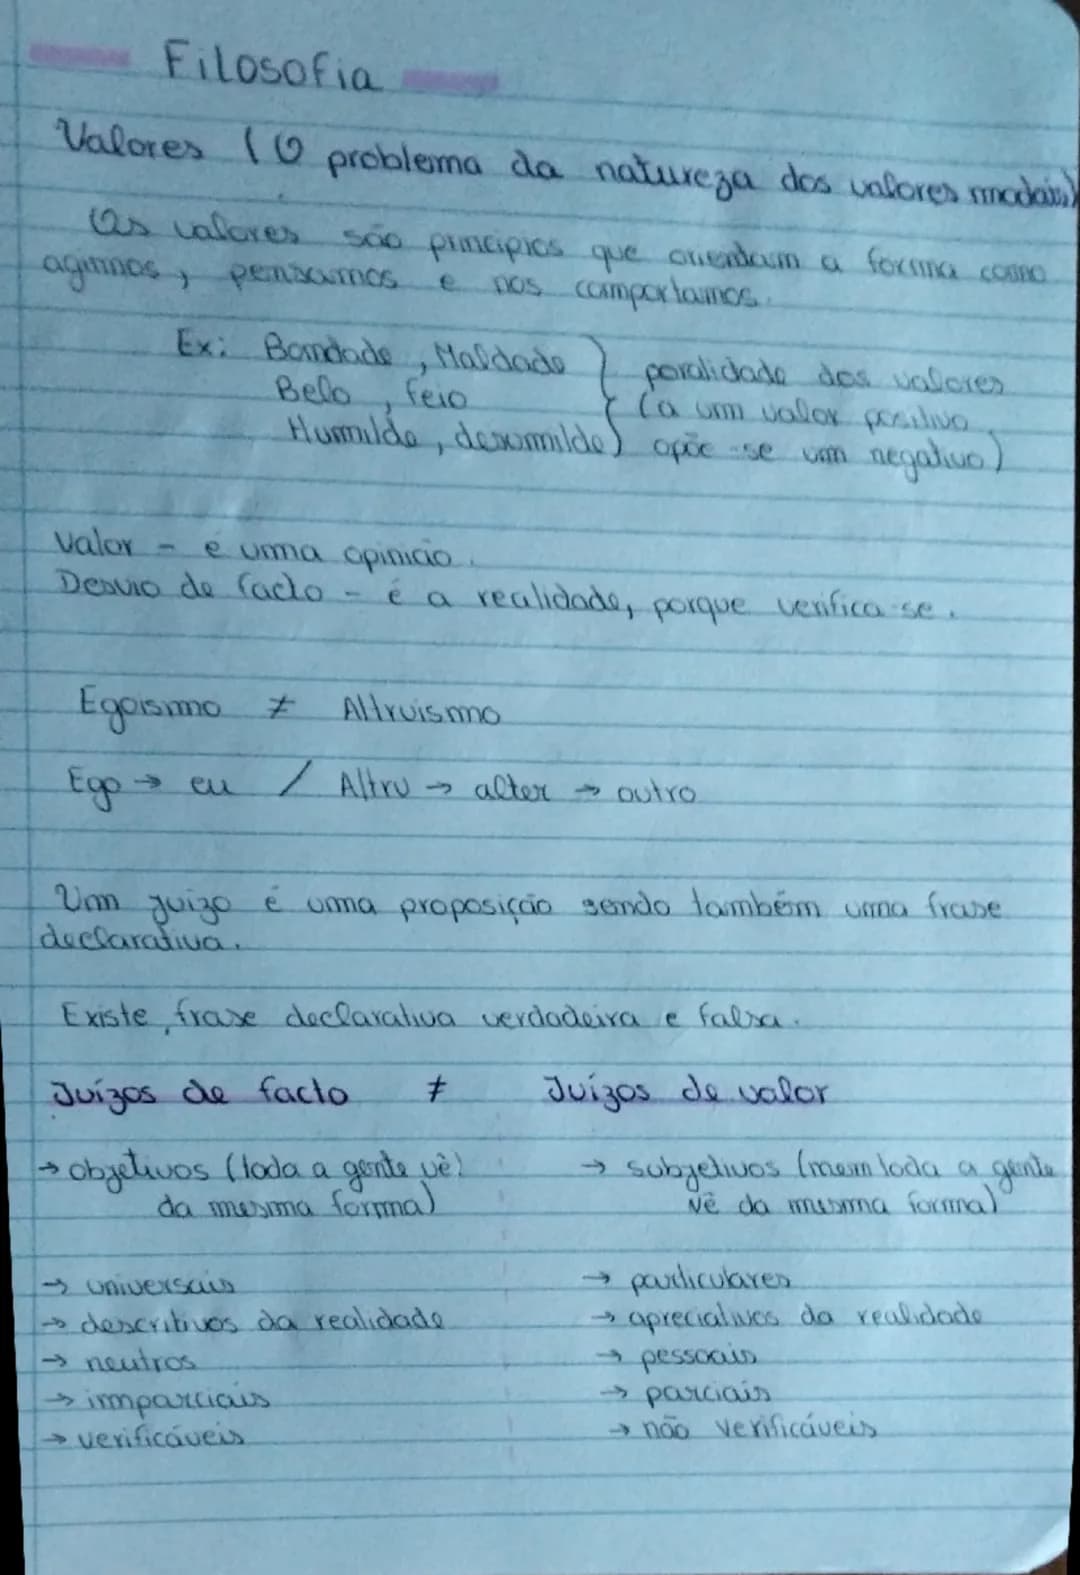 Filosofia
Valores (O problema da natureza dos valores morais)
Os valores são princípios que orientam a forma como
agimos, pensamos e nos comportamos.
Ex: Bondade, Maldade } poralidade dos valores
Belo, feio (a um valor positivo
Humilde, desumilde) opõe-se um negativo)
Valor - é uma opinião.
Desvio de facto - é a realidade, porque verifica-se.
Egoísmo ≠ Altruísmo
Ego → eu / Altru → alter → outro
Um juízo é uma proposição sendo também uma frase
declarativa.
Existe, frase declarativa verdadeira e falsa.
Juízos de facto ≠ Juízos de valor
→ objetivos (toda a gente vê → subjetivos (nem toda a gente
da mesma forma) vê da mesma forma)
→ universais → particulares
→ descritivos da realidade → apreciativos da realidade
→ neutros → pessoais
→ imparciais → parciais
→ verificáveis → não verificáveis